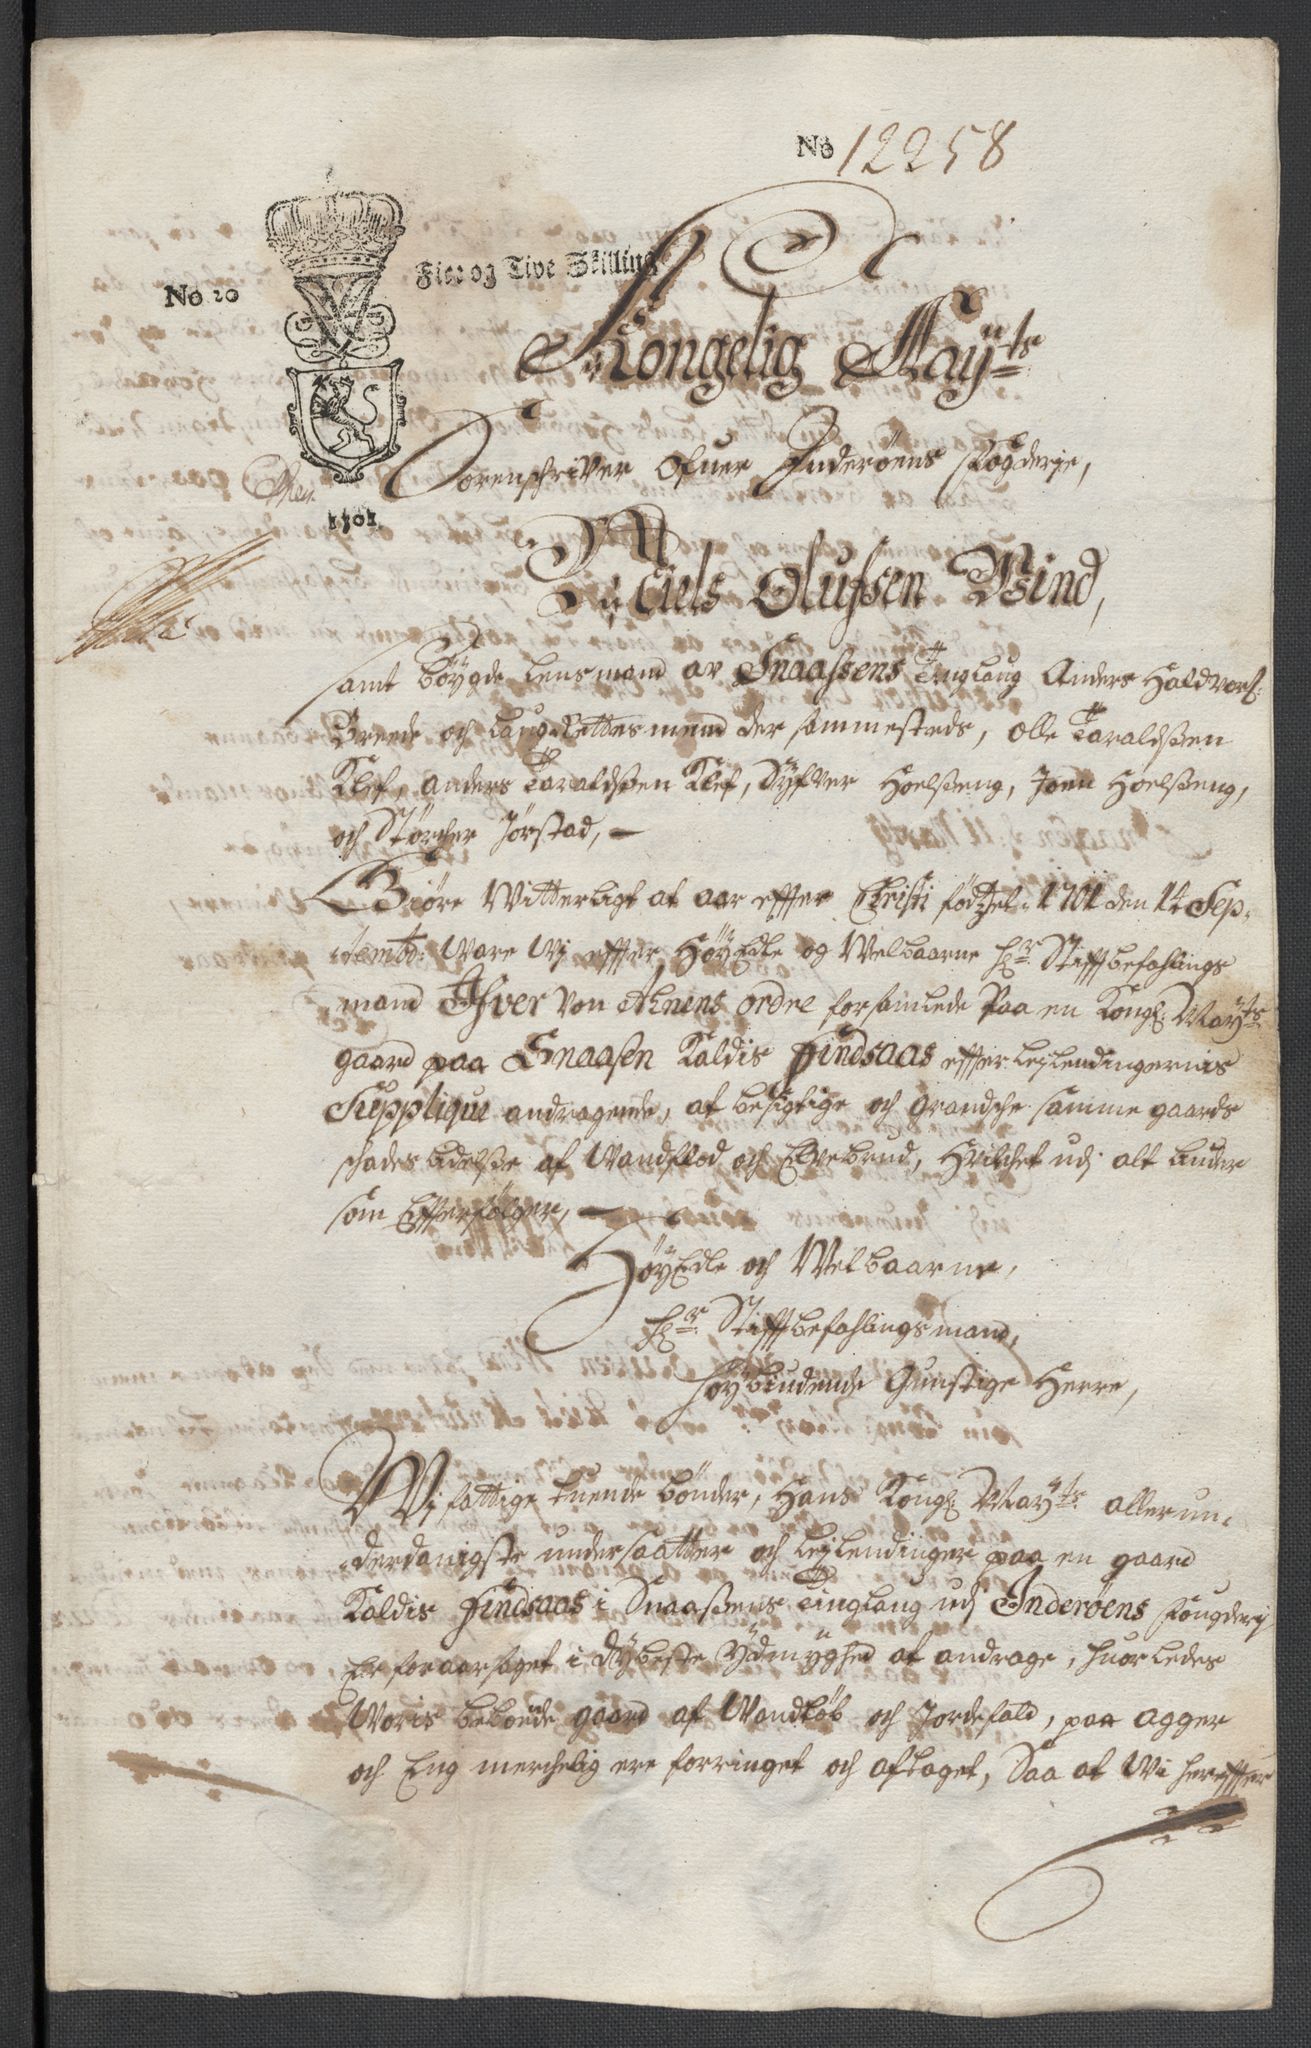 No 12258
No 20
Fire og Tive Skilling
1701.
Kongelig Mayts
Sorenschriver Ofuer Inderöens fögderje,
Niels Olufsen Wind,
samt böygde lensmand av Snaassens Tinglaug Anders Haldvors:
Breede och Laug Rettes mend der sammesteds, Olle Taraldßen
Klef, Anders Taraldßen Klef, Syfver Hoelßeng, Joen Hoelßeng,
och Störcher Jörstad,
Giöre Witterligt at aar effter Christi födtzel 1701 den 14 Sep-
tembr: Ware Wj effter HöyEdle og Welbaarne Hr: Stifftbefahlings
mand Ifver Von Ahnens ordre forsamlede Paa en Kongl: Mayts
gaard paa Snaasen Kaldis Findsaas effter Leylendingernis
Supplique andragende, at besigtige och grandsche samme gaards
schades lidelße af Wandflod och Elvebrud, Hvilchet udj alt lyder
som Effterfölger,
HöyEdle och Welbaarne,
Hr: Stifftbefahlingsmand,
Höybiudende Gunstige Herre,
Wj fattige tuende bönder, Hans Kongl: Mayts allerun-
derdanigste undersaatter och Leylendinger paa en gaard
Kaldis Findsaas i Snaaßens Tinglaug udj Inderöens fougderj
Er foraarsaget i dybeste Ydmyghed at andrage, huorledes
Woris beboende gaard af Wandlöb och Jordefald, paa agger
och Eng merchelig ere forringet och aftaget, Saa at Wi hereffter